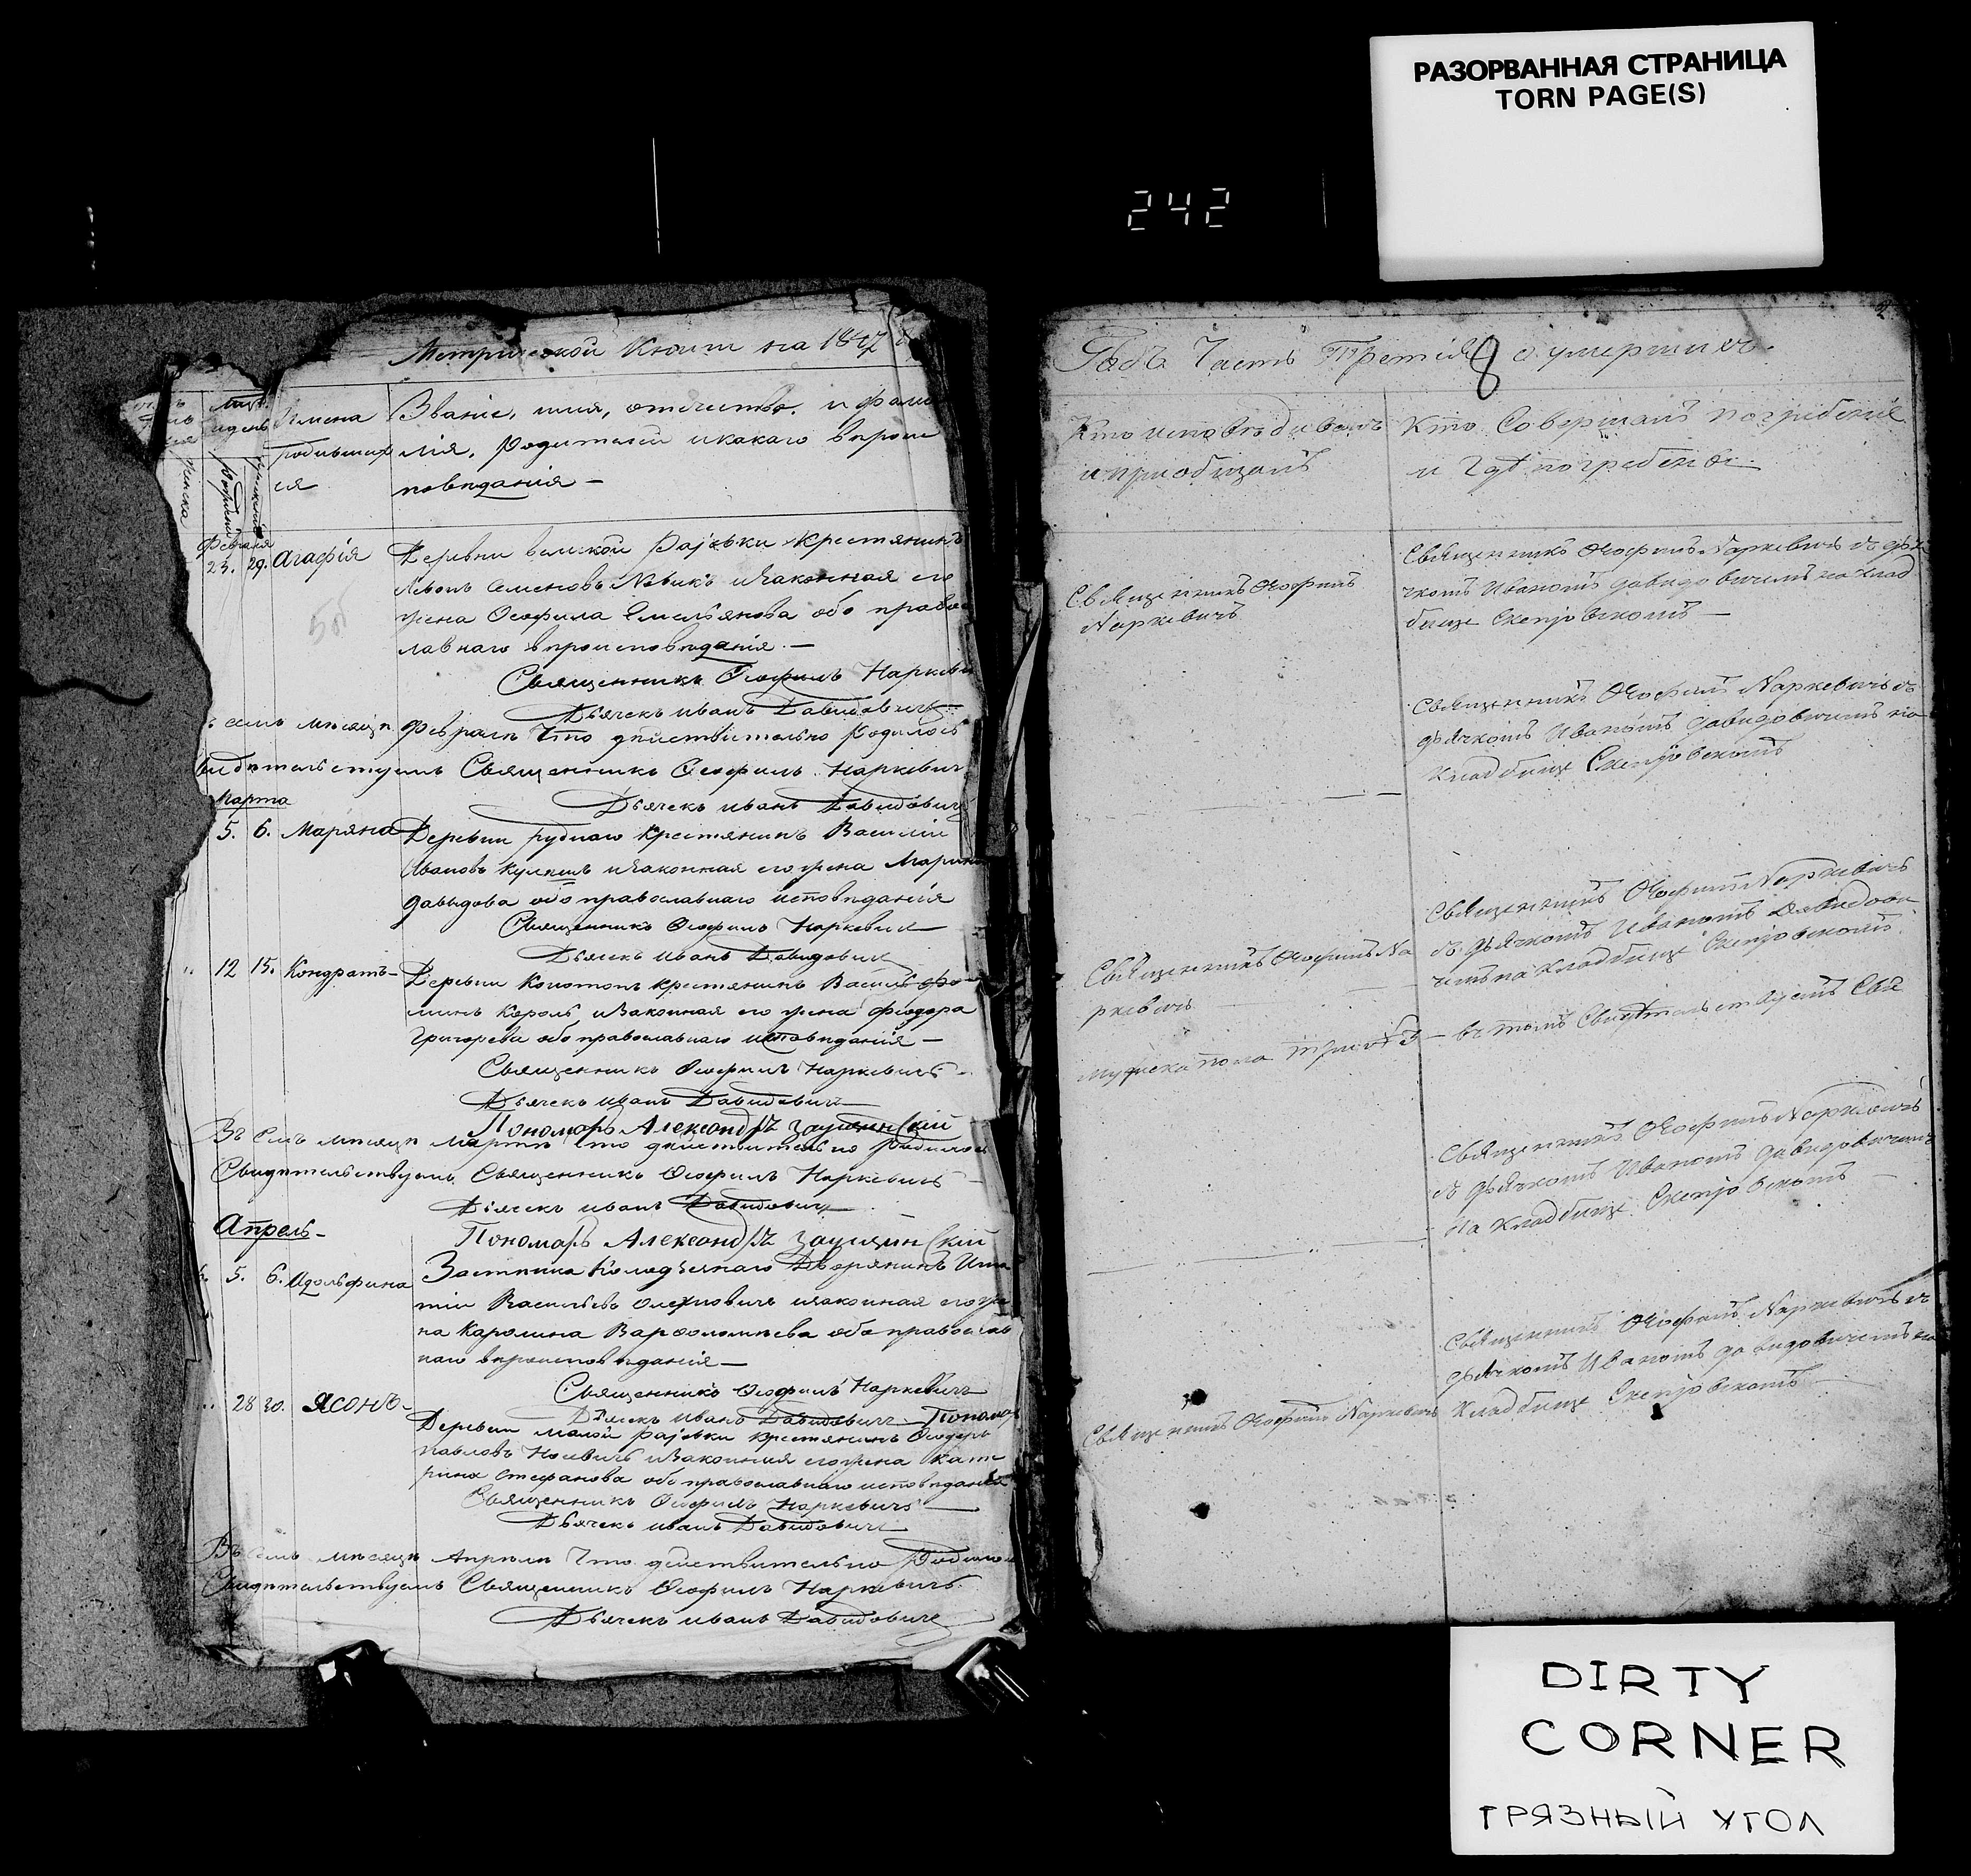 РАЗОРВАННАЯ СТРАНИЦА
TORN PAGE(S)
242
Метрической Книги на 1847
Имена
родивших
ся
Званіе, имя, отечество, и фами
лія, Родителей и какаго вѣроис
повѣданія —
Февраля
23. 29. Агафія
Деревни великой Раjовки Крестьянинъ
Семеновъ Новикъ и Законная его
жена Феофила Емельянова обо право
лавнаго вѣроисповѣданія. —
Священникъ Феофилъ Наркеви
Дьячекъ Иванъ Давидовичъ
семъ мѣсяцѣ Февралѣ Что дѣйствительно Родилось
видѣтельствуемъ Священникъ Феофилъ Наркевич
Дьячекъ Иванъ Давидовичъ
Марта
5. 6. Маряна
Деревни Руднаго Крестьянинъ Василій
Ивановъ и Законная его жена Марина
Давыдова обо православнаго исповѣданія
Священникъ Феофилъ Наркевич
Дьячекъ Иванъ Давидович
12 15. Кондратъ —
Деревни Конотопъ крестьянинъ Василь Фо
минъ Король и Законная его жена Федора
Григорева обо православнаго исповѣданія —
Священникъ Феофилъ Наркевичъ —
Дьячекъ Иванъ Давидович
Пономарь Александръ
Въ Семъ мѣсяцѣ Мартѣ Что дѣйствительно Родилось
Свидѣтельствуемъ Священникъ Феофилъ Наркевичъ —
Дьячекъ Иванъ Давидович
Апрель —
Пономарь Александръ
5. 6. Адольфина
Застѣнка Колодезнаго Дворянинъ Игна
тій Васильевъ и законная его же
на Каролина Варфоломѣева обо православ
наго вѣроисповѣданія —
Священникъ Феофилъ Наркевичъ
28 30. Ясонъ —
Дьячекъ Иванъ Давидовичъ Пономар
Деревни малой Раjовки крестьянинъ Феодоръ
Павловъ Носевичъ и Законная его жена Кате
рина Стефанова обо православнаго исповѣданія
Священникъ Феофилъ Наркевичъ —
Дьячекъ Иванъ Давидовичъ
Въ Семъ мѣсяцѣ Апрѣлѣ Что дѣйствительно Родилось
Свидѣтельствуемъ Священникъ Феофилъ Наркевичъ.
Дьячекъ Иванъ Давидовичъ
2
Годъ Часть Третія 8 о умершихъ.
Кто исповѣдывалъ
и приобщалъ
Кто Совершалъ погребеніе
и Гдѣ погребены
Священникъ Феофилъ
Наркевичъ
Священникъ Феофилъ Наркевичъ съ дья
чкомъ Иваномъ Давидовичемъ на Клад
бище —
Священникъ Феофилъ Наркевичъ съ
дьячкомъ Иваномъ Давидовичемъ на
Кладбище
Священникъ Феофилъ На
ркевичъ
Священникъ Феофилъ Наркевичъ
съ дьячкомъ Иваномъ Давидови
чемъ на Кладбище
мужеска пола три 3 — въ томъ Свидѣтельствуетъ Свя
Священникъ Феофилъ Наркевичъ
съ дьячкомъ Иваномъ Давидовичемъ
на Кладбище
Священникъ Феофилъ Наркевичъ
Священникъ Феофилъ Наркевичъ съ
дьячкомъ Иваномъ Давидовичемъ на
Кладбище
DIRTY
CORNER
ГРЯЗНЫЙ УГОЛ